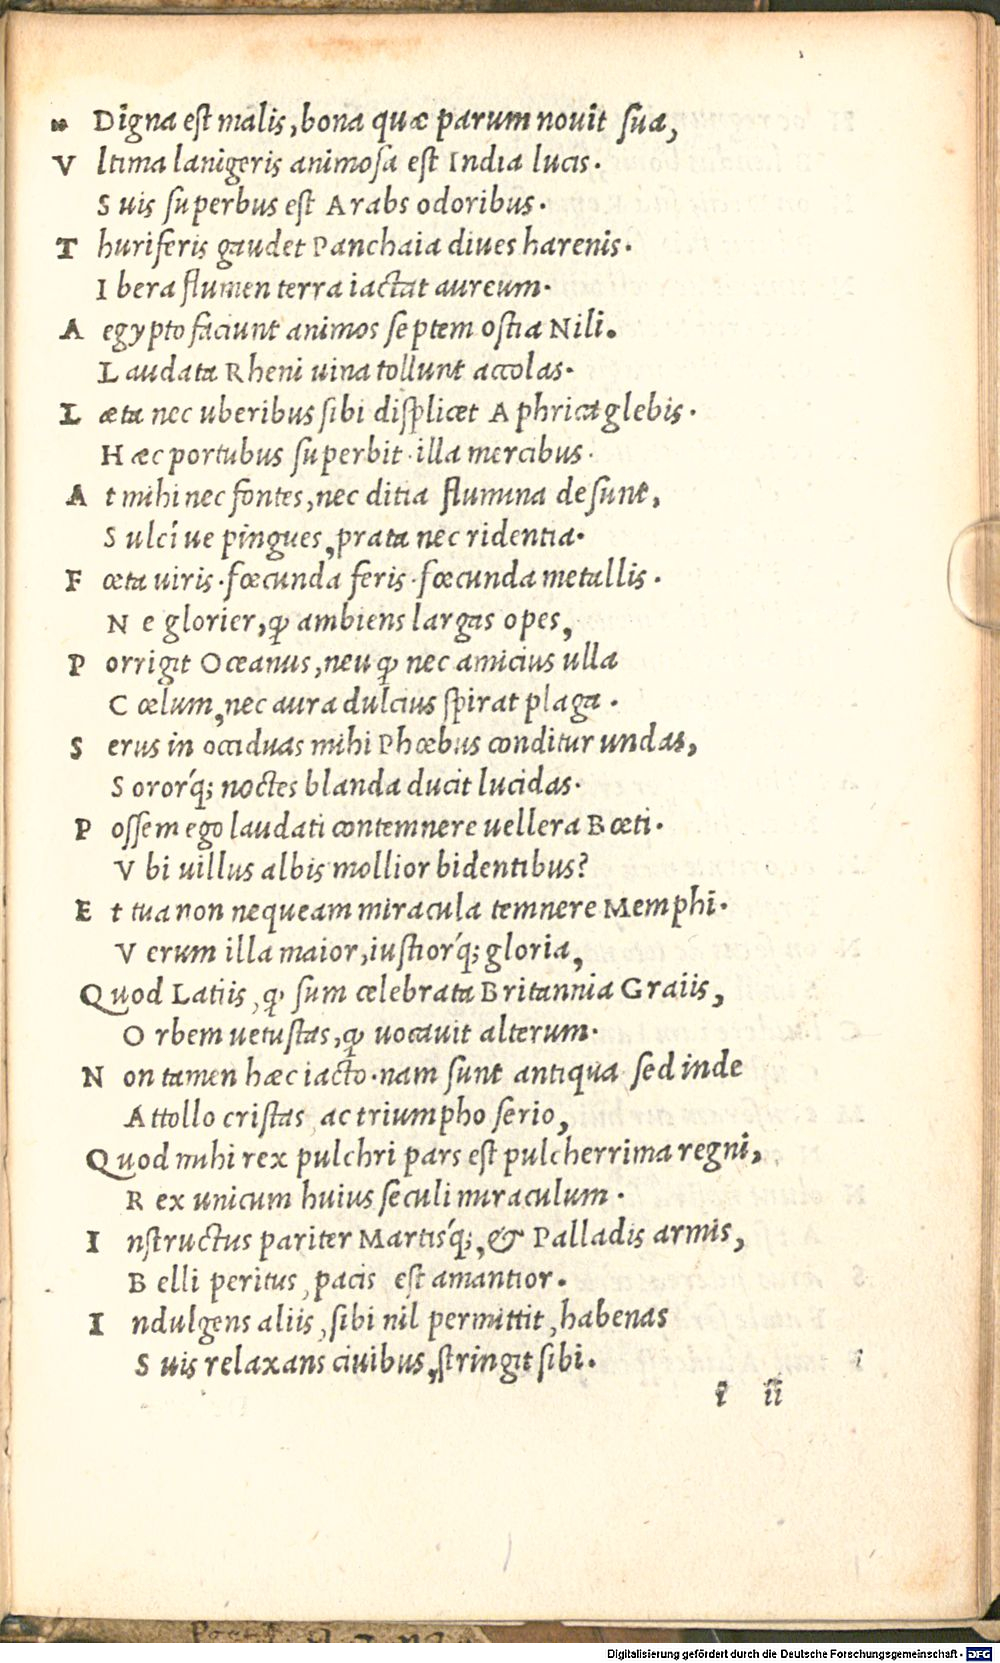 Digna est malis, bona quæ parum novit sua,
V ltima lanigeris animosa est India lucis.
S uis superbus est Arabs odoribus.
T huriferis gaudet Panchaia diues harenis.
I bera flumen terra iactat aureum.
A egypto faciunt animos septem ostia Nili.
L audata Rheni uina tollunt accolas.
L æta nec uberibus sibi displicet Aphrica glebis.
H æc portubus superbit. illa mercibus.
A t mihi nec fontes, nec ditia flumina desunt,
S ulci ue pingues, prata nec ridentia.
F œta uiris. fœcunda feris. fœcunda metallis.
N e glorier, ꝙ ambiens largas opes,
P orrigit Oceanus, neu ꝙ nec amicius ulla
C œlum, nec aura dulcius spirat plaga.
S erus in occiduas mihi Phœbus conditur undas,
S oror´q; noctes blanda ducit lucidas.
P ossem ego laudati contemnere uellera Bœti.
V bi uillus albis mollior bidentibus?
E t tua non nequeam miracula temnere Memphi.
V erum illa maior, iustior´q; gloria,
Quod Latiis, ꝙ sum celebrata Britannia Graiis,
O rbem uetustas, ꝙ uocauit alterum.
N on tamen hæc iacto. nam sunt antiqua sed inde
A ttollo cristas, ac triumpho serio,
Quod mihi rex pulchri pars est pulcherrima regni,
R ex unicum huius seculi miraculum.
I nstructus pariter Martis´q;, & Palladis armis,
B elli peritus, pacis est amantior.
I ndulgens aliis, sibi nil permittit, habenas
S uis relaxans ciuibus, stringit sibi.
ii
Digitalisierung gefördert durch die Deutsche Forschungsgemeinschaft - DFG